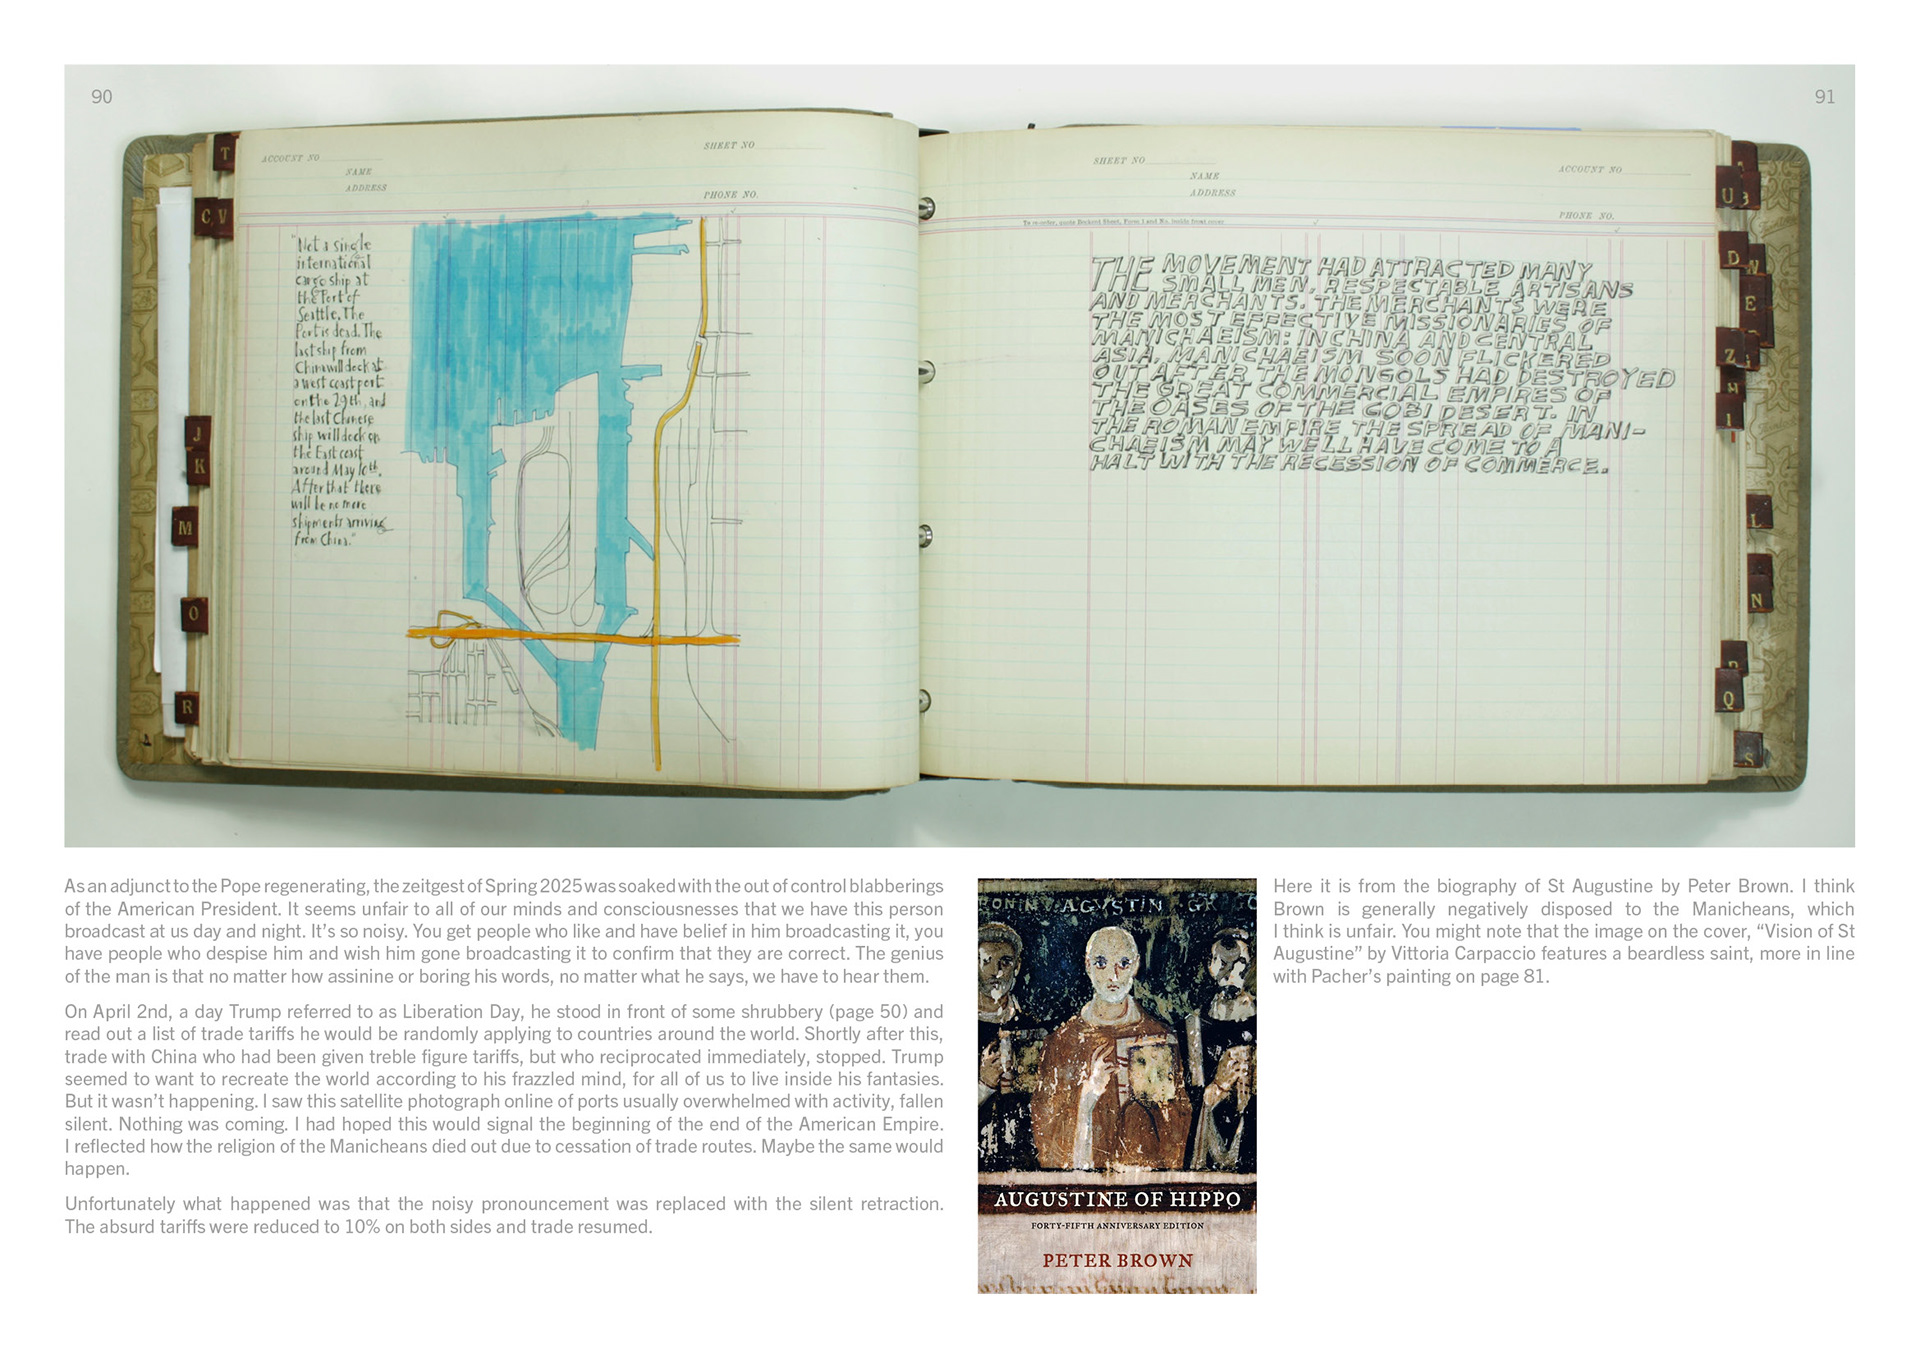 90
91
T
C V
J
K
M
O
R
ACCOUNT NO
NAME
ADDRESS
SHEET NO
PHONE NO.
"Not a single
international
cargo ship at
the Port of
Seattle. The
Port is dead. The
last ship from
China will dock at
a west coast port
on the 29th, and
the last Chinese
ship will dock on
the East coast
around May 10th.
After that there
will be no more
shipments arriving
from China."
SHEET NO
NAME
ADDRESS
ACCOUNT NO
PHONE NO.
To re-order, quote Beckerd Sheet, Form 1 and No. inside front cover
THE MOVEMENT HAD ATTRACTED MANY
SMALL MEN, RESPECTABLE ARTISANS
AND MERCHANTS. THE MERCHANTS WERE
THE MOST EFFECTIVE MISSIONARIES OF
MANICHAEISM: IN CHINA AND CENTRAL
ASIA, MANICHAEISM SOON FLICKERED
OUT AFTER THE MONGOLS HAD DESTROYED
THE GREAT COMMERCIAL EMPIRES OF
THE OASES OF THE GOBI DESERT. IN
THE ROMAN EMPIRE THE SPREAD OF MANI-
CHAEISM MAY WELL HAVE COME TO A
HALT WITH THE RECESSION OF COMMERCE.
U B
D W
E
Z
H
I
L
N
Q
S
As an adjunct to the Pope regenerating, the zeitgest of Spring 2025 was soaked with the out of control blabberings
of the American President. It seems unfair to all of our minds and consciousnesses that we have this person
broadcast at us day and night. It's so noisy. You get people who like and have belief in him broadcasting it, you
have people who despise him and wish him gone broadcasting it to confirm that they are correct. The genius
of the man is that no matter how assinine or boring his words, no matter what he says, we have to hear them.
On April 2nd, a day Trump referred to as Liberation Day, he stood in front of some shrubbery (page 50) and
read out a list of trade tariffs he would be randomly applying to countries around the world. Shortly after this,
trade with China who had been given treble figure tariffs, but who reciprocated immediately, stopped. Trump
seemed to want to recreate the world according to his frazzled mind, for all of us to live inside his fantasies.
But it wasn't happening. I saw this satellite photograph online of ports usually overwhelmed with activity, fallen
silent. Nothing was coming. I had hoped this would signal the beginning of the end of the American Empire.
I reflected how the religion of the Manicheans died out due to cessation of trade routes. Maybe the same would
happen.
Unfortunately what happened was that the noisy pronouncement was replaced with the silent retraction.
The absurd tariffs were reduced to 10% on both sides and trade resumed.
AGVSTIN
AUGUSTINE OF HIPPO
FORTY-FIFTH ANNIVERSARY EDITION
PETER BROWN
Here it is from the biography of St Augustine by Peter Brown. I think
Brown is generally negatively disposed to the Manicheans, which
I think is unfair. You might note that the image on the cover, "Vision of St
Augustine" by Vittoria Carpaccio features a beardless saint, more in line
with Pacher's painting on page 81.